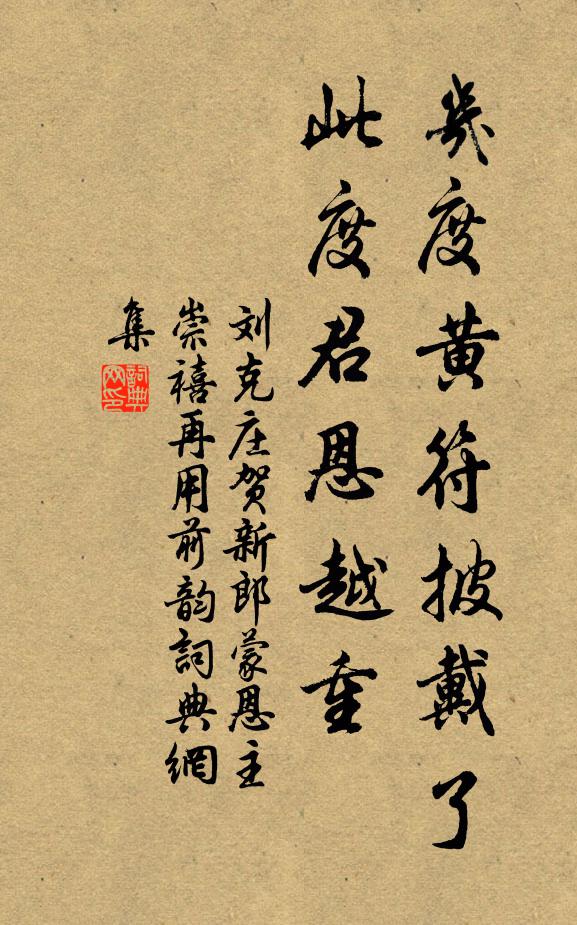 幾度黄符披戴了
此度君恩越重
刘克庄贺新郎蒙恩主
崇禧再用前韵詞典網
集
詞典
网印